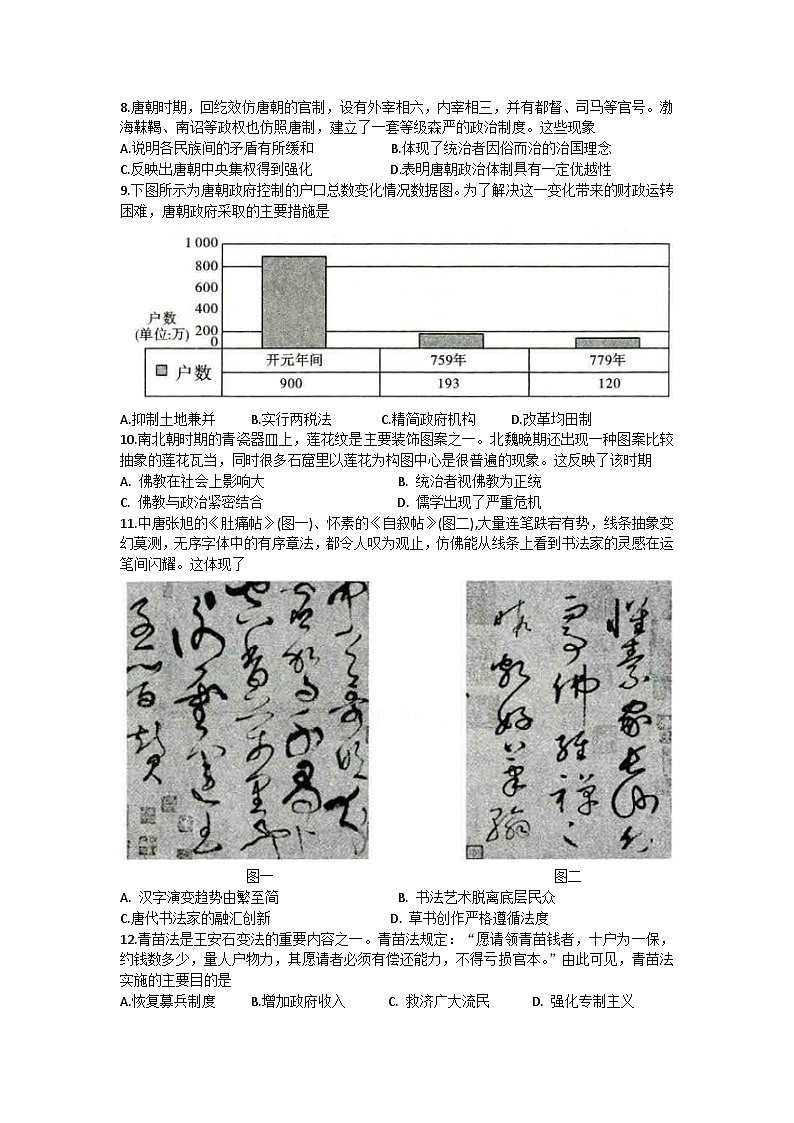 8.唐朝时期，回纥效仿唐朝的官制，设有外宰相六，内宰相三，并有都督、司马等官号。渤
海靺鞨、南诏等政权也仿照唐制，建立了一套等级森严的政治制度。这些现象
A.说明各民族间的矛盾有所缓和 B.体现了统治者因俗而治的治国理念
C.反映出唐朝中央集权得到强化 D.表明唐朝政治体制具有一定优越性
9.下图所示为唐朝政府控制的户口总数变化情况数据图。为了解决这一变化带来的财政运转
困难，唐朝政府采取的主要措施是
1 000
800
600
400
200
0
户数
(单位:万)
开元年间 759年 779年
户数 900 193 120
A.抑制土地兼并 B.实行两税法 C.精简政府机构 D.改革均田制
10.南北朝时期的青瓷器皿上，莲花纹是主要装饰图案之一。北魏晚期还出现一种图案比较
抽象的莲花瓦当，同时很多石窟里以莲花为构图中心是很普遍的现象。这反映了该时期
A. 佛教在社会上影响大 B. 统治者视佛教为正统
C. 佛教与政治紧密结合 D. 儒学出现了严重危机
11.中唐张旭的《肚痛帖》(图一)、怀素的《自叙帖》(图二),大量连笔跌宕有势，线条抽象变
幻莫测，无序字体中的有序章法，都令人叹为观止，仿佛能从线条上看到书法家的灵感在运
笔间闪耀。这体现了
怀素家长沙
幼
事佛经禅之
暇颇好笔翰
图一 图二
A. 汉字演变趋势由繁至简 B. 书法艺术脱离底层民众
C.唐代书法家的融汇创新 D. 草书创作严格遵循法度
12.青苗法是王安石变法的重要内容之一。青苗法规定：“愿请领青苗钱者，十户为一保，
约钱数多少，量人户物力，其愿请者必须有偿还能力，不得亏损官本。”由此可见，青苗法
实施的主要目的是
A.恢复募兵制度 B.增加政府收入 C. 救济广大流民 D. 强化专制主义